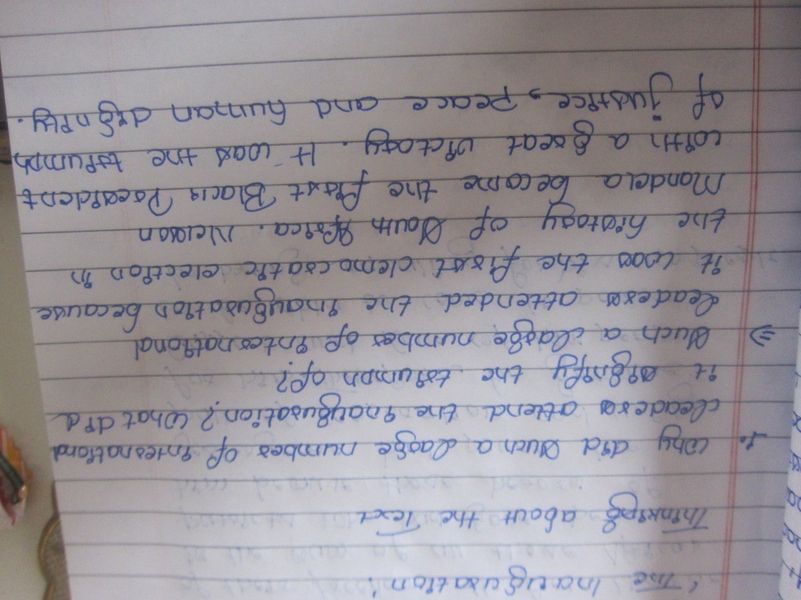 'The Inauguration'
Thinking about the Text
1. Why did such a large number of international
leaders attend the inauguration? What did
it signify the triumph of?
⇒ Such a large number of international
leaders attended the inauguration because
it was the first democratic election in
the history of South Africa. Nelson
Mandela become the first Black President
with a great victory. It was the triumph
of justice, peace and human dignity.